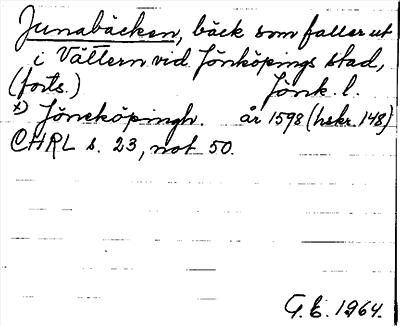 Junabäcken, bäck som faller ut
i Vättern vid Jönköpings stad,
(forts.) Jönk. l.
x) Jöneköpingh. år 1598 (hskr. 148)
CHRL s. 23, not 50.
G.E. 1964.